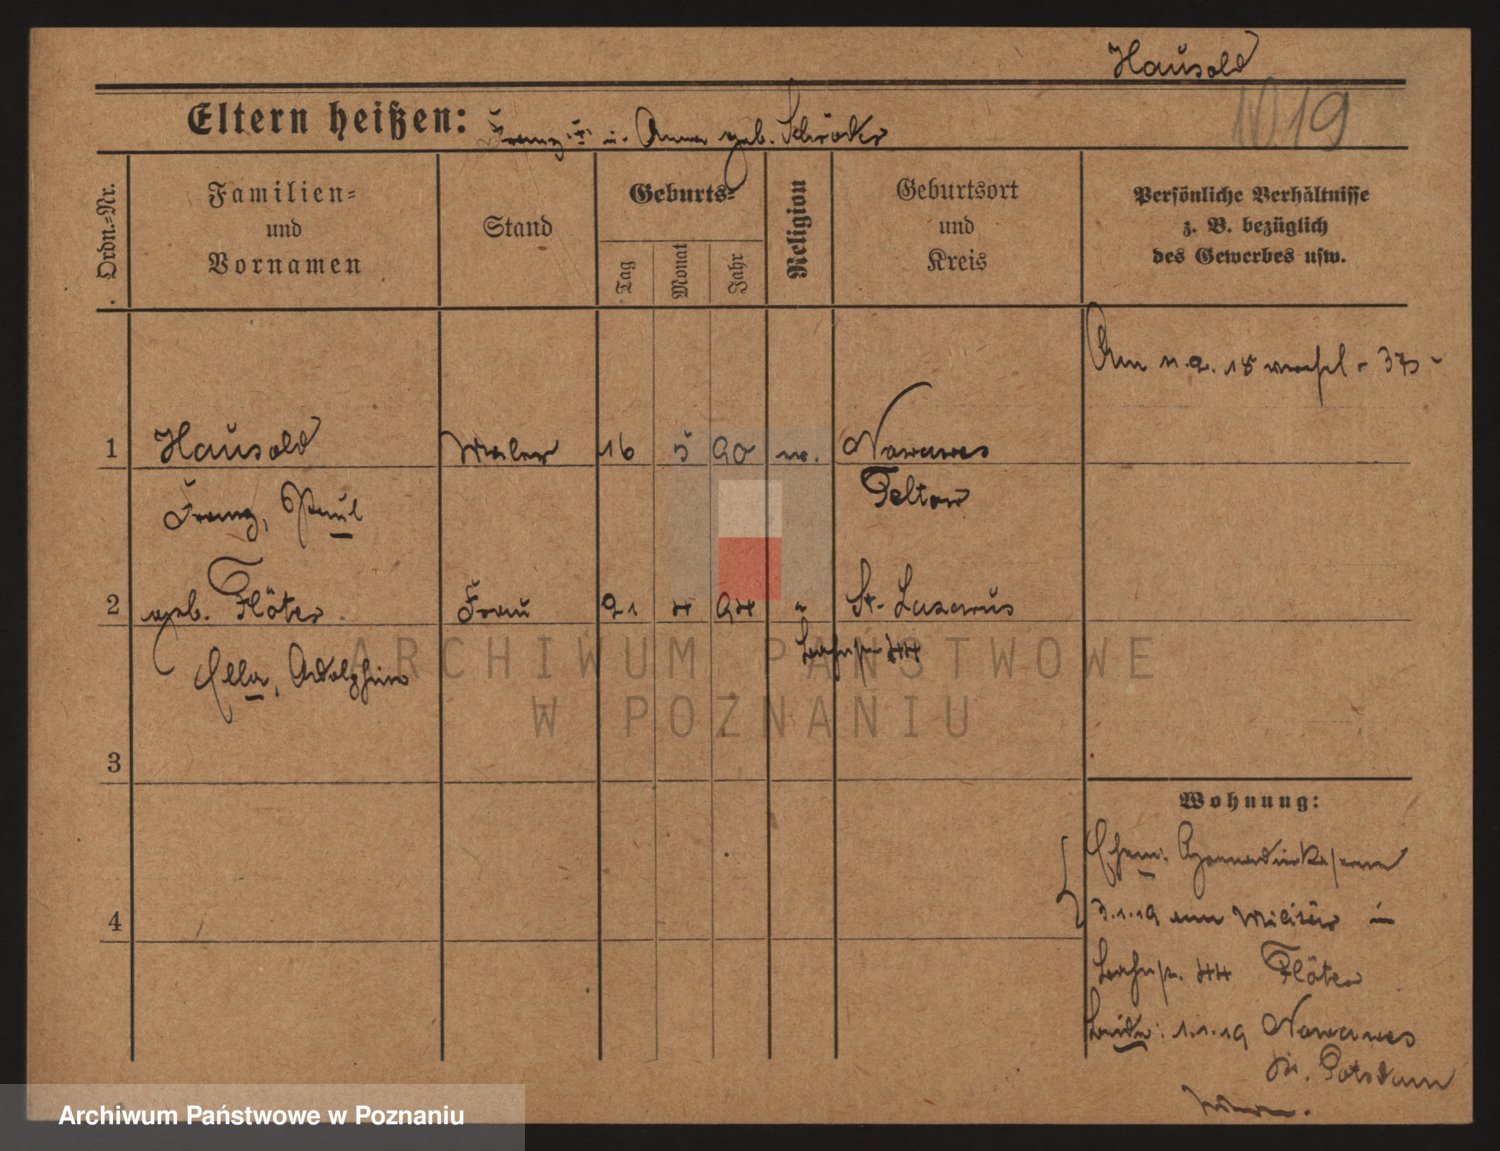 Hausold
1019
Eltern heißen: Franz u. Anna geb. Schröder
Ordn.=Nr.
Familien=
und
Vornamen
Stand
Geburts=
Tag
Monat
Jahr
Religion
Geburtsort
und
Kreis
Persönliche Verhältnisse
z. B. bezüglich
des Gewerbes usw.
1 Hausold Maler 16 5 90 Nowawes
Franz, Paul Teltow
2 geb. Flöter Frau 21 4 94 " St. Lazarus
Ella, 44
3
4
Wohnung:
3.1.19 Militär in
44 Flöter
1.1.19 Nowawes
Potsdam
ARCHIWUM PAŃSTWOWE
W POZNANIU
Archiwum Państwowe w Poznaniu